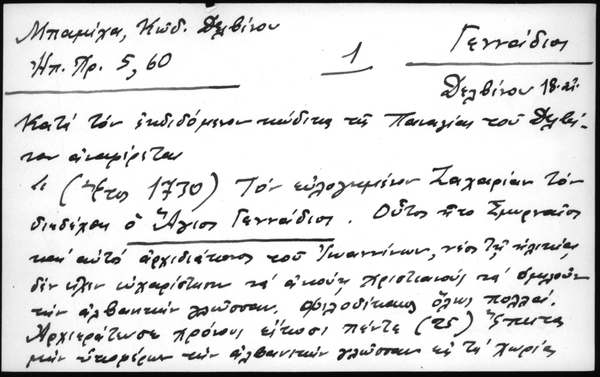 Μπαμίχα, Κώδ. Δελβίνου
Ἠπ. Χρ. 5, 60
1
Γεννάδιος
Δελβίνου 18. αἰ.
Κατά τόν ἐκδιδόμενον κώδικα τῆς Παναγίας τοῦ Δελβί-
νου ἀναφέρεται
(Ἔτος 1730) Τόν εὐλογημένον Ζαχαρίαν τόν
διεδέχθη ὁ Ἅγιος Γεννάδιος. Οὗτος ἦτο Σμυρναῖος
καί αὐτό ἀρχιδιάκονος τοῦ Ἰωαννίνων, νέος τῆς ἡλικίας
δέν εἶχεν εὐχαρίστησιν νά ἀκούῃ χριστιανούς νά ὁμιλοῦν
τήν ἀλβανικήν γλῶσσαν. Φιλοδίκαιος ὅλως πολλά.
Ἀρχιεράτευσε χρόνους εἴκοσι πέντε Ἔπειτα
μήν ὑποφέρων τήν ἀλβανικήν γλῶσσαν εἰς τά χωρία